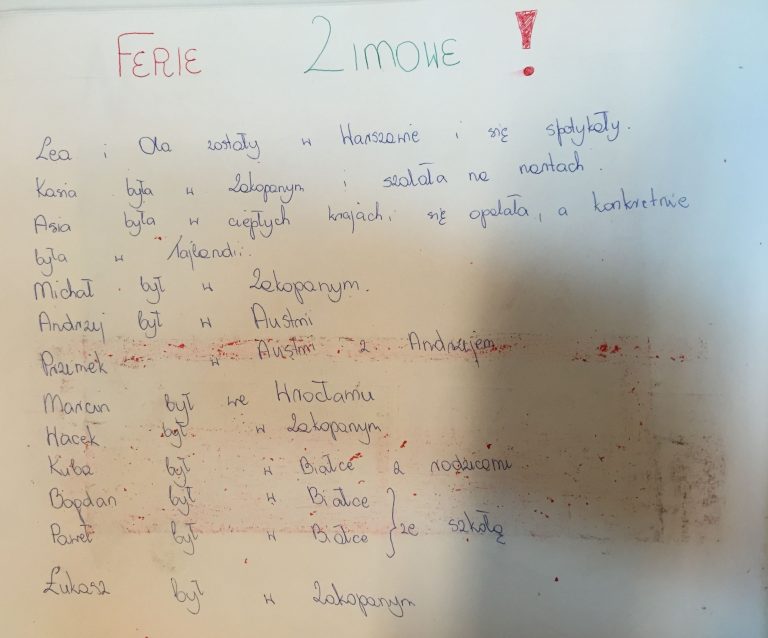 FERIE ZIMOWE!
Lea i Ola zostały w Warszawie i się spotykały.
Kasia była w Zakopanym i szalała na nartach.
Asia była w ciepłych krajach, się opalała, a konkretnie
była w Tajlandii.
Michał był w Zakopanym.
Andrzej był w Austrii
Przemek w Austrii z Andrzejem
Marcin był we Wrocławiu
Macek był w Zakopanym
Kuba był w Białce z rodzicami
Bogdan był w Białce
Paweł był w Białce } ze szkołą
Łukasz był w Zakopanym